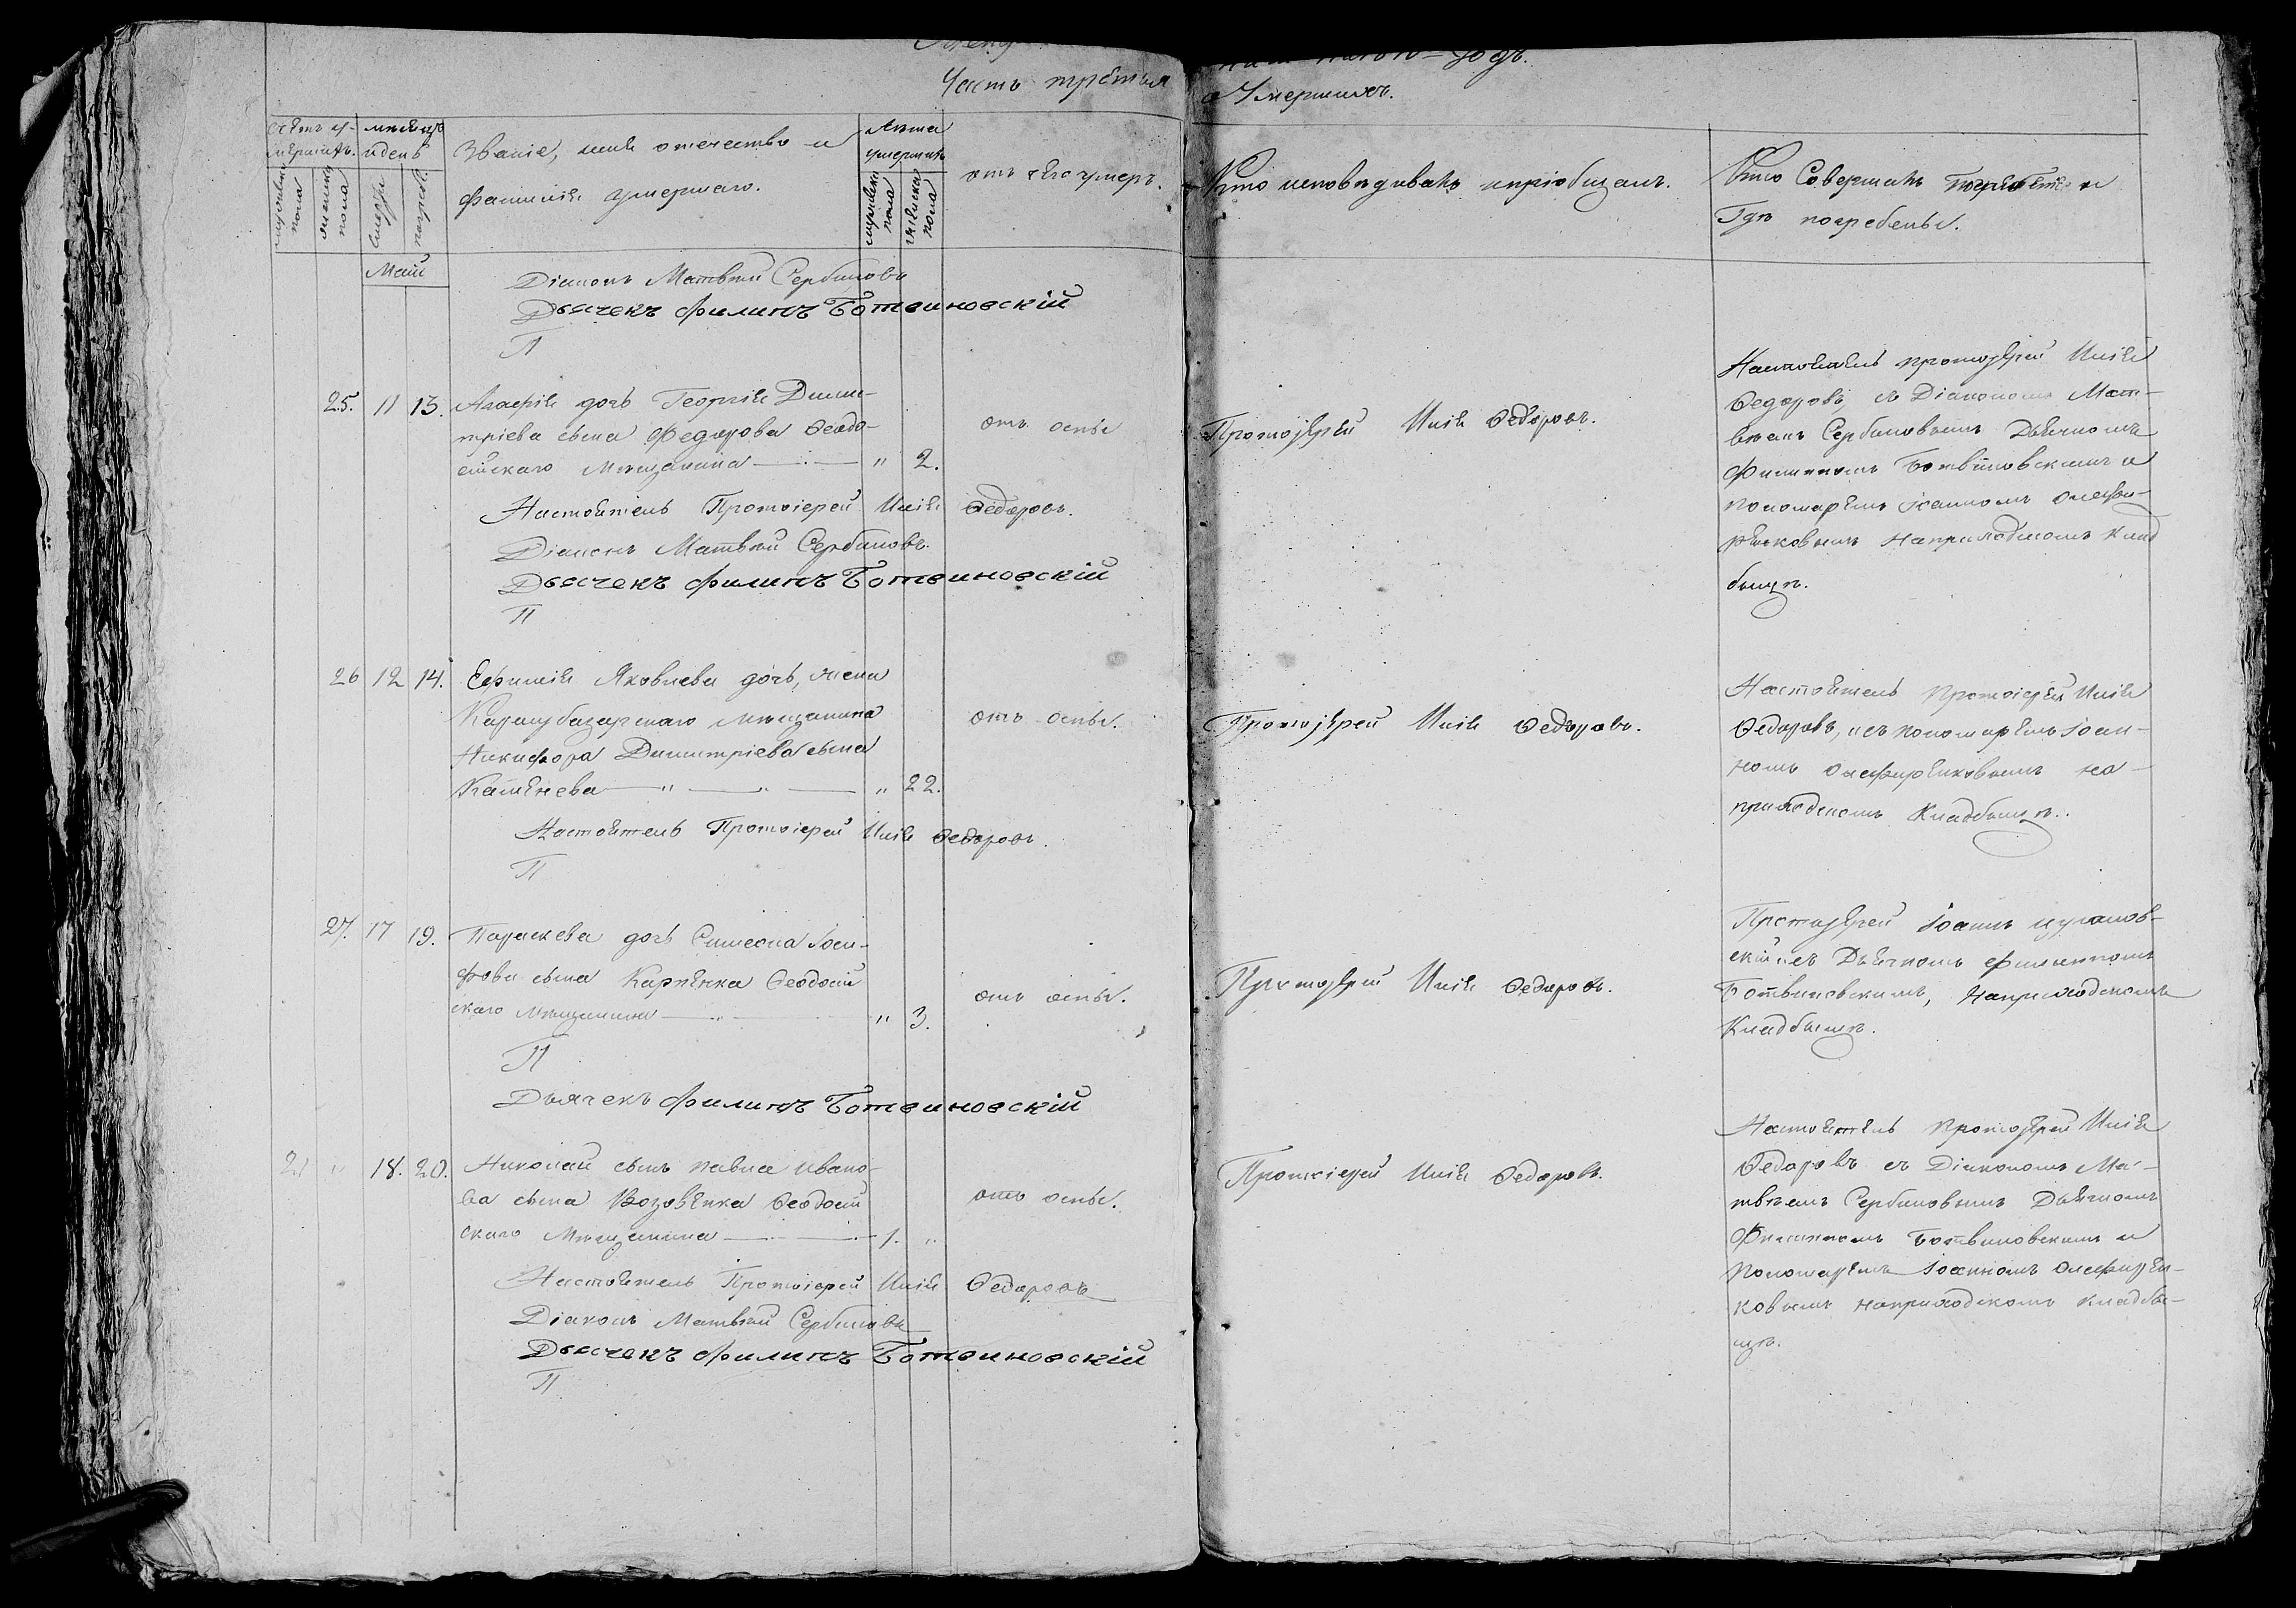 Часть третья
о Умершихъ.
мѣсяцъ
и день
Званіе, имя отечество и
фамилія умершаго.
Лѣта
умершихъ
отъ чего умеръ.
Кто исповѣдывалъ и пріобщалъ.
Кто Совершалъ погребеніе и
Гдѣ погребены.
мужеска пола
женска пола
смерти
погреб.
мужеска пола
женска пола
Май
Діаконъ Матвѣй Сербиновъ
Дьячекъ Филипъ Ботвиновскій
П
25. 11 13. Агафія дочь Георгія Дими-
тріева сына Федорова Ѳеодо-
сійскаго Мѣщанина — " 2.
отъ оспы
Протоіерей Илія Ѳедоровъ.
Настоятель протоіерей Илія
Ѳедоровъ, съ Діакономъ Мат-
вѣемъ Сербиновымъ Дьячкомъ
Филиппомъ Ботвиновскимъ и
пономаремъ Іоанномъ
на приходскомъ клад
бищѣ.
Настоятель Протоіерей Илія Ѳедоровъ.
Діаконъ Матвѣй Сербиновъ.
Дьячекъ Филипъ Ботвиновскій
П
26 12 14. Ефимія Яковлева дочь, жена
Карасубазарскаго мѣщанина
Никифора Димитріева сына
" 22.
отъ оспы.
Протоіерей Илія Ѳедоровъ.
Настоятель протоіерей Илія
Ѳедоровъ, съ пономаремъ Іоан-
номъ на
приходскомъ Кладбищѣ.
Настоятель Протоіерей Илія Ѳедоровъ.
П
27. 17 19. Параскева дочь Симеона Іоси-
фова сына Карпенка Ѳеодосій
скаго Мѣщанина — " 3.
отъ оспы.
Протоіерей Илія Ѳедоровъ.
Протоіерей Іоаннъ
съ Дьячкомъ Филиппомъ
Ботвиновскимъ, на приходскомъ
Кладбищѣ.
П
Дьячекъ Филипъ Ботвиновскій
" 18. 20. Николай сынъ Павла Ивано-
ва сына Возовенка Ѳеодосій
скаго Мѣщанина — 1. "
отъ оспы.
Протоіерей Илія Ѳедоровъ.
Настоятель протоіерей Илія
Ѳедоровъ съ Діакономъ Ма-
твѣемъ Сербиновымъ Дьячкомъ
Филиппомъ Ботвиновскимъ и
Пономаремъ Іоанномъ
на приходскомъ кладби-
щѣ.
Настоятель Протоіерей Илія Ѳедоровъ
Діаконъ Матвѣй Сербиновъ
Дьячекъ Филипъ Ботвиновскій
П